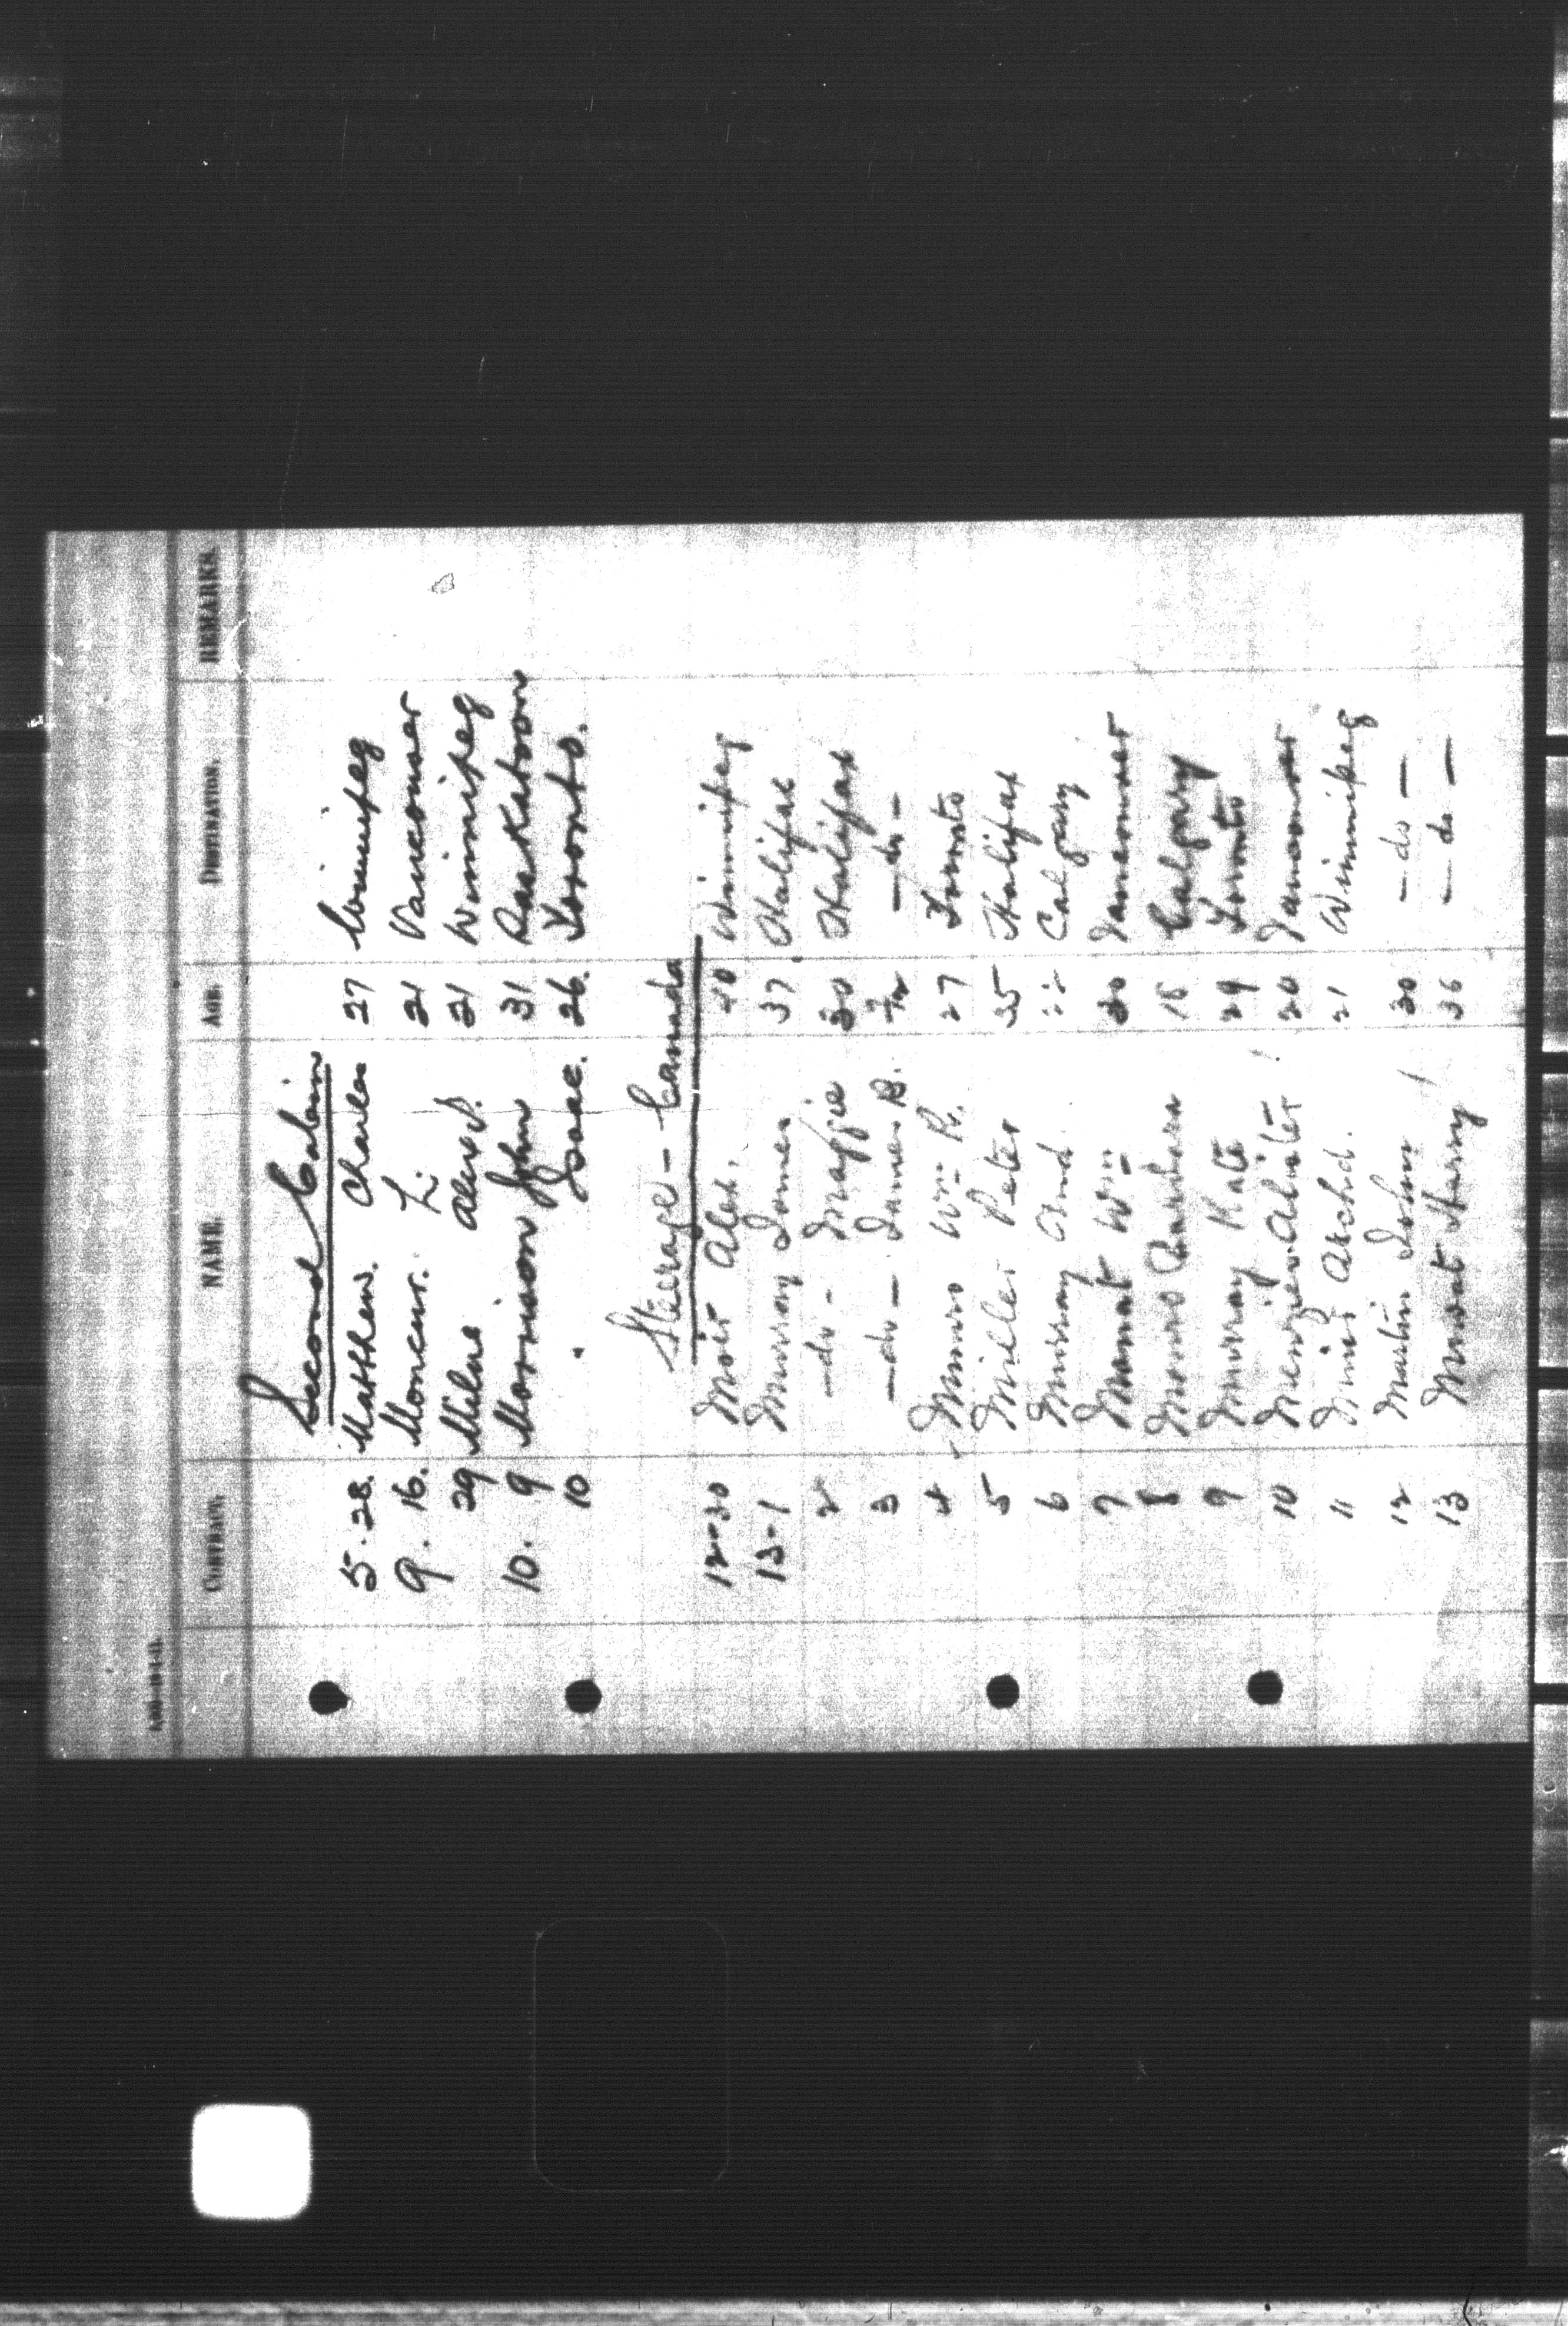 CONTRACT. NAME. AGE. DESTINATION. REMARKS.
Second Cabin
5. 28. Matthew. Charles 27 Winnipeg
9. 16. Moncur. L. 21 Vancouver
29 Milne Alex P. 21 Winnipeg
10. 9 Morrison John 31 Saskatoon
10 " Isaac. 26. Toronto.
Steerage - Canada
12-30 Moir Alex. 40 Winnipeg
13-1 Murray James 37 Halifax
2 -do- Maggie 30 Halifax
3 -do- James B. -do-
4 Munro Wm R. 27 Toronto
5 Miller Peter 35 Halifax
6 Murray And. 22 Calgary
7 Mowat Wm 30 Vancouver
8 Munro Barbara 18 Calgary
9 Murray Kate 29 Toronto
10 Menzies Alister 20 Vancouver
11 Archd. 21 Winnipeg
12 Martin John 30 -do-
13 Mowat Harry 36 -do-